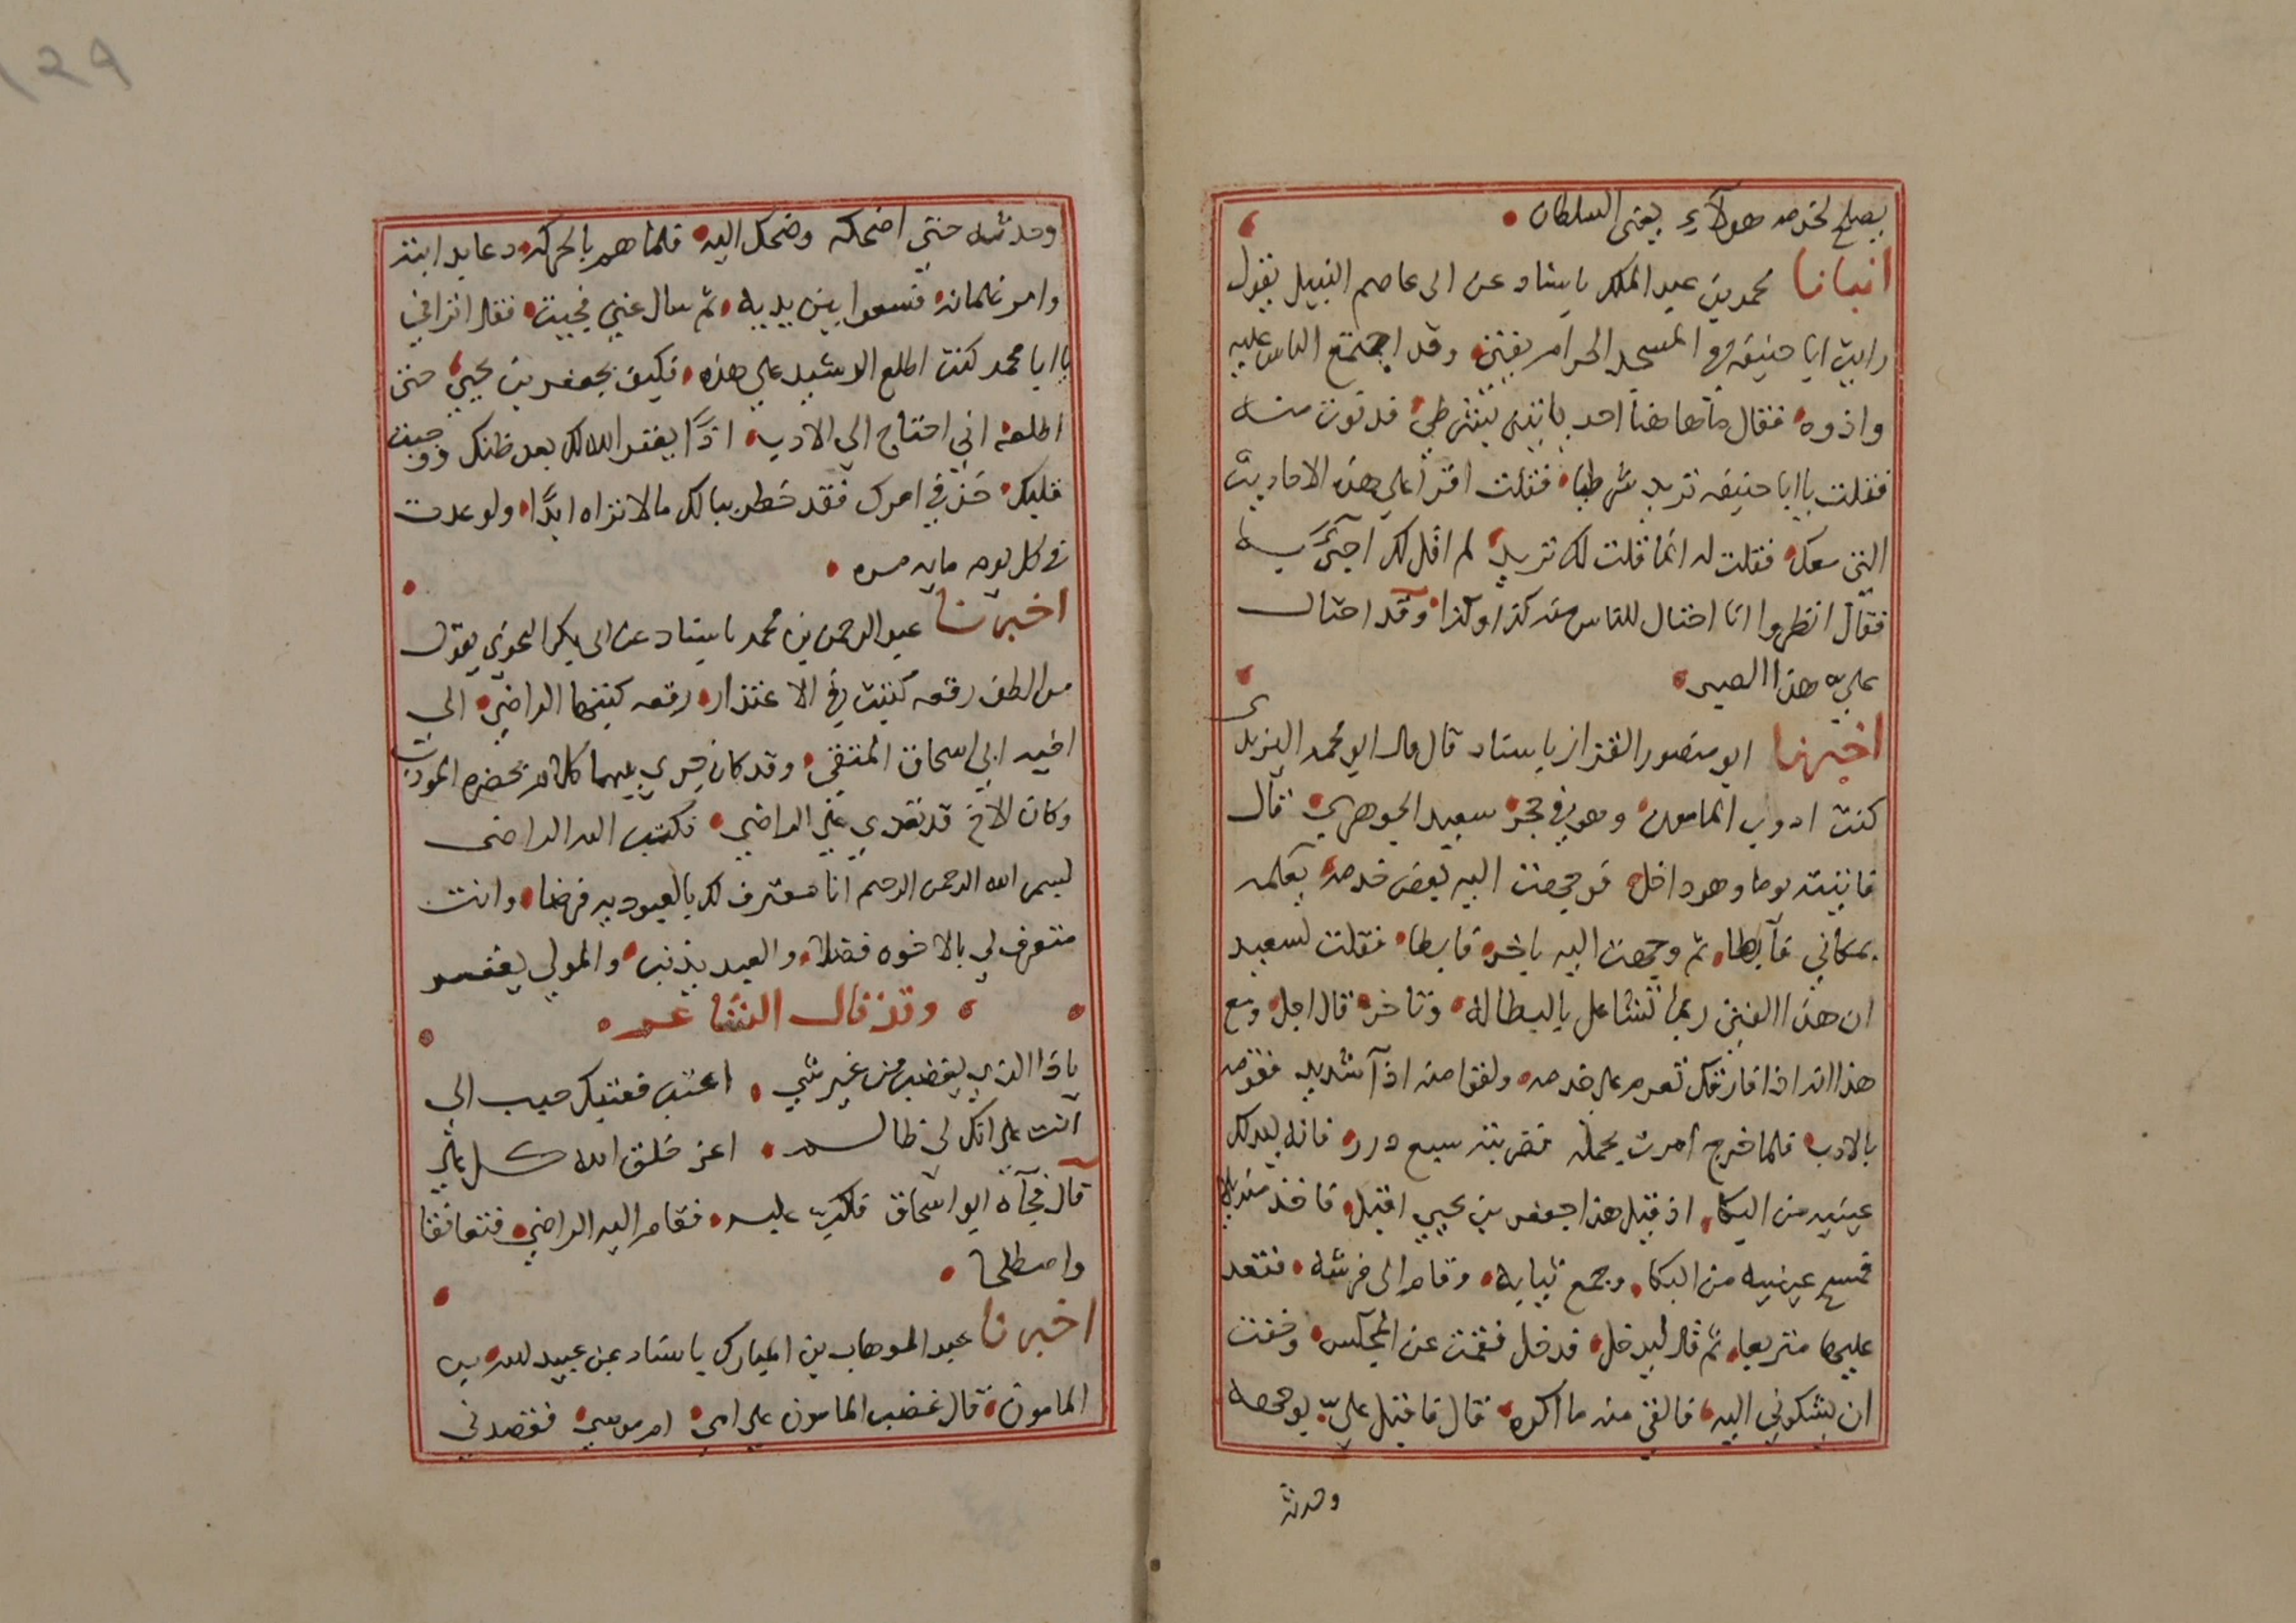 يصلح لخدمه هولآء يعنى السلطان
انبانا محمد بن عبد الملك باسناد عن ابى عاصم النبيل يقول
رايت ابا حنيفه في المسجد الحرام يفتى وقد اجتمع الناس عليه
واذوه فقال ماهاهنا احد ياتينى بشرطي فدنوت منه
فقلت يا ابا حنيفه تريد شرطيا فقلت اقرا علي هذه الاحاديث
التي معك فقلت له انما قلت لك تريد لم اقل لك اجئ به
فقال انظروا انا احتال للناس منه كذا وكذا وقد احتال
علي هذا الصبى
اخبرنا ابو منصور القزاز باسناد قال قال ابو محمد اليزيدى
كنت اودب المامون وهو في حجر سعيد الجوهري قال
فاتيته يوما وهو داخل فوجهت اليه بعض خدمه يعلمه
بمكاني فابطا ثم وجهت اليه باخر فابطا فقلت لسعيد
ان هذا الفتى ربما تشاغل بالبطاله وتاخر قال اجل ومع
هذا انه اذا فارقك تعرم على خدمه ولقوا منه اذا شديد فقومه
بالادب فلما خرج امرت بحمله فضربته سبع درر فانه ليدلك
عينيه من البكا اذ قيل هذا جعفر بن يحيي اقبل فاخذ منديلا
فمسح عينيه من البكا وجمع ثيابه وقام الى فرشه فقعد
عليها متربعا ثم قال ليدخل فدخل فقمت عن المجلس وخفت
ان يشكوني اليه فالقى منه ما اكره قال فاقبل عليه بوجهه
وحدثه
وحدثه حتى اضحكه وضحك اليه فلما هم بالحركه دعا بدابته
وامر غلمانه فسعوا بين يديه ثم سال عني فجيت فقال اتراني
يا ابا محمد كنت اطلع الرشيد علي هذه فكيف بجعفر بن يحيي حتى
اطلعه اني احتاج الي الادب اذًا يغفر الله لك بعد ظنك ووجيب
قلبك خذ في امرك فقد خطر ببالك مالا تراه ابدًا ولو عدت
في كل يوم مايه مره
اخبرنا عبد الرحمن بن محمد باسناد عن ابى بكر النحوي يقول
من الطف رقعه كتبت في الاعتذار رقعه كتبها الراضي الي
اخيه ابي اسحاق المتقي وقد كان جري بينهما كلام بحضره المودب
وكان الاخ قد تعدي علي الراضي فكتب اليه الراضى
بسم الله الرحمن الرحيم انا معترف لك بالعبوديه فرضا وانت
متعرف لي بالاخوه فضلا والعبد يذنب والمولي يغفر
وقد قال الشاعر
ياذا الذي يغضب من غير شي اعتب فعتبك حبيب الي
انت على انك لى ظالم اعز خلق الله كل علي
قال فجآه ابو اسحاق فاكب عليه فقام اليه الراضي فتعانقا
واصطلحا
اخبرنا عبد الوهاب بن المبارك باسناد عن عبيد الله بن
المامون قال غضب المامون علي امي ام موسي فقصدني